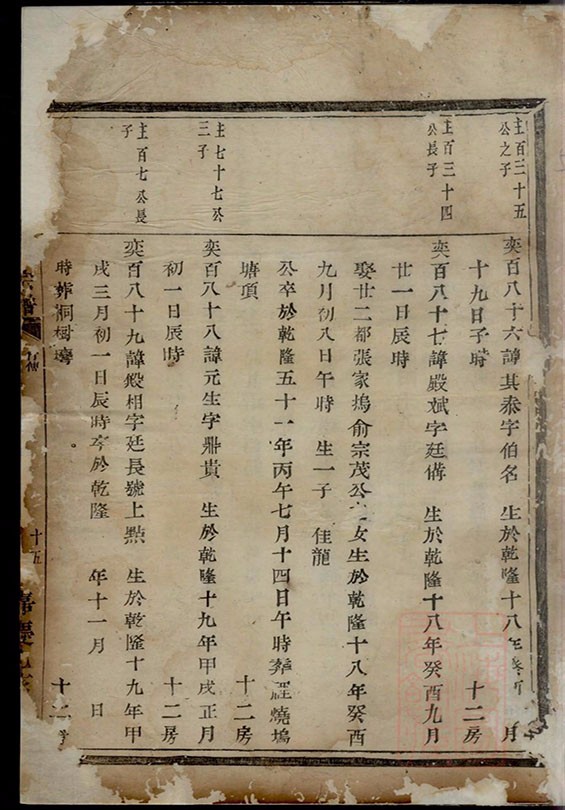 主百三十五
公之子
奕百八十六諱其泰字伯名 生於乾隆十八年 月
十九日子時 十二房
主百三十四
公長子
奕百八十七諱殿斌字廷備 生於乾隆十八年癸酉九月
廿一日辰時 十二房
娶廿二都張家塢俞宗茂公 女生於乾隆十八年癸酉
九月初八日午時 生一子 佳龍
公卒於乾隆五十一年丙午七月十四日午時葬 燒塢
塘項 十二房
主七十七公
三子
奕百八十八諱元生字鼎貴 生於乾隆十九年甲戌正月
初一日辰時 十二房
主百七公長
子
奕百八十九諱殿相字廷長號上點 生於乾隆十九年甲
戌三月初一日辰時卒於乾隆 年十一月 日
時葬洞樹塆 十二房
宗譜
十五